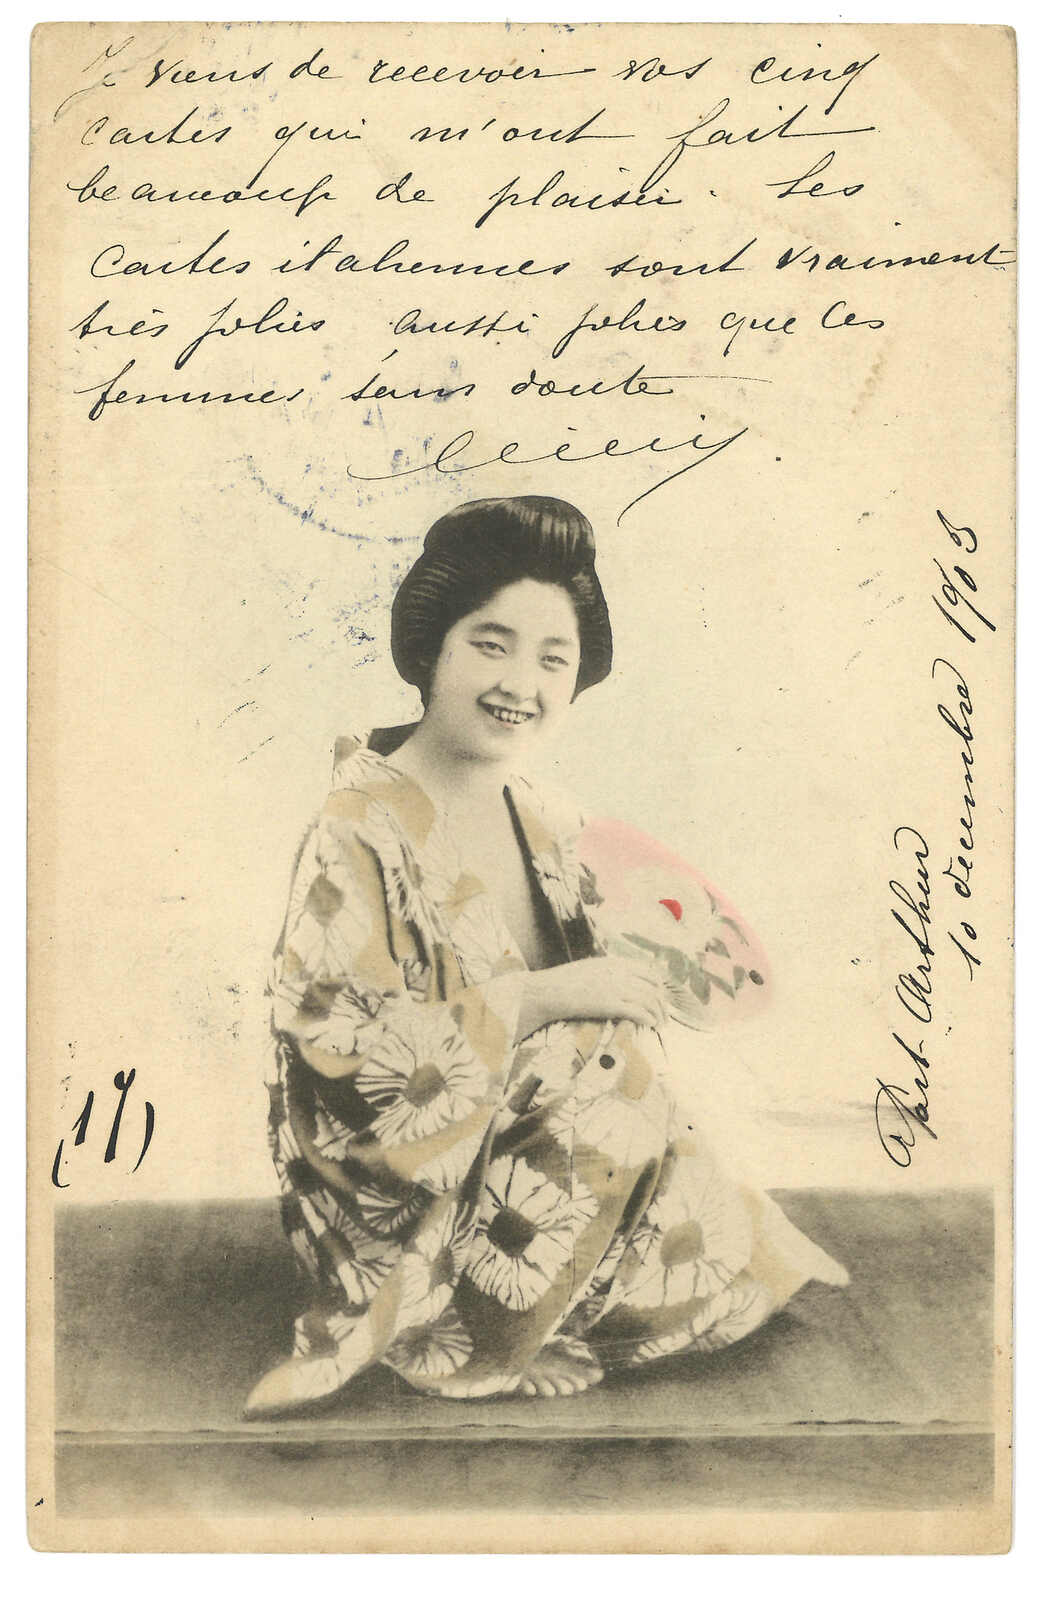 Je viens de recevoir vos cinq
cartes qui m'ont fait
beaucoup de plaisir. Les
cartes italiennes sont vraiment
très jolies aussi jolies que les
femmes sans doute
Port Arthur
10 decembre 1903
(17)